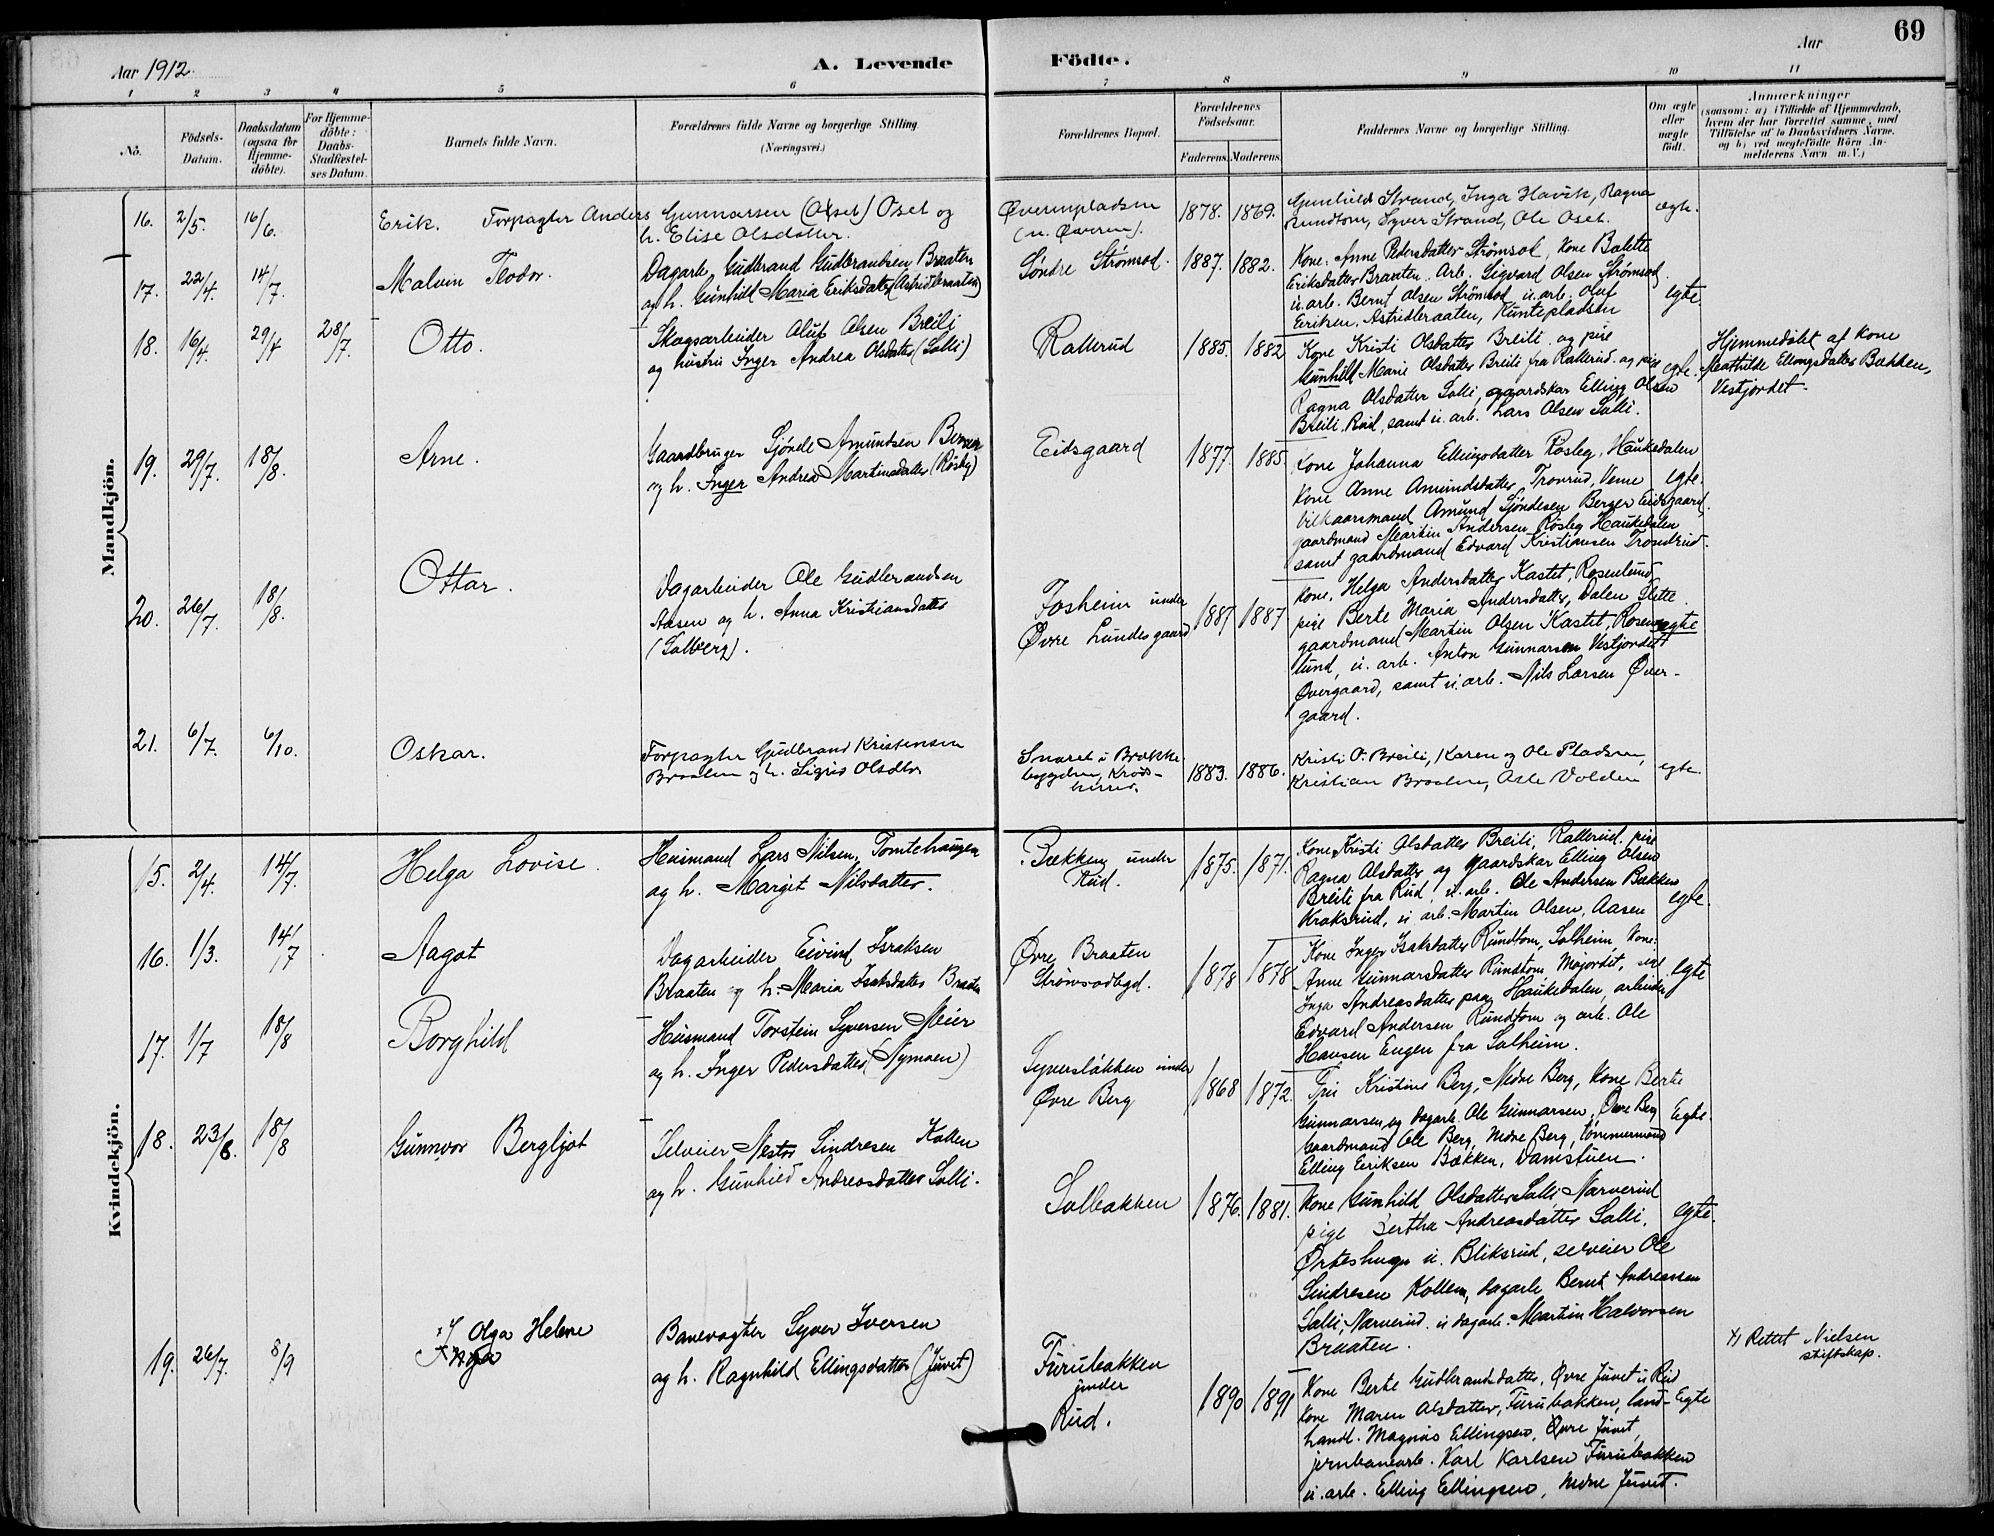 69
Aar 1912.
A. Levende
Födte.
Aar
1 2 3 4 5 6 7 8 9 10 11
No.
Födsels-
Datum.
Daabsdatum
(ogsaa for
Hjemme-
döbte).
For Hjemme-
döbte:
Daabs-
Stadfæstel-
ses Datum.
Barnets fulde Navn.
Forældrenes fulde Navne og borgerlige Stilling.
(Næringsvei.)
Forældrenes Bopæl.
Forældrenes
Födselsaar.
Faderens.
Moderens.
Faddernes Navne og borgerlige Stilling.
Om ægte
eller
uægte
födt.
Anmærkninger
(saasom: a) i Tilfælde af Hjemmedaab,
hvem der har forrettet samme, med
Tilföielse af to Daabsvidners Navne.
og b) ved uægtefödte Börn An-
melderens Navn m. V.)
Mandkjön.
16. 2/5. 16/6. Erik. Forpagter Anders Gunnarsen (Oset) Oset og
h. Elise Olsdatter.
1878. 1869.
Gunhild Strand, Inga Havik, Ragna
Rundtom, Syver Strand, Ole Oset.
ægte.
17. 22/4. 14/7. Malvin Teodor.
Dagarb. Gudbrand Gudbrandsen Braaten
og h. Gunhild Maria Eriksdatter (Astridbraaten)
Søndre Strømsod. 1887. 1882.
Kone: Anne Pedersdatter Strømsod, Kone Bolette
Eriksdatter Braaten. Arb. Sigvard Olsen Strømsod
u. arb. Bernt Olsen Strømsod, u. arb. Oluf
Eriksen, Astridbraaten, Kuntepladsen
egte.
18. 16/4. 29/7 28/7. Otto.
Skogsarbeider Oluf Olsen Breili
og hustru Inger Andrea Olsdatter (Solli)
Rallerud 1885. 1882
Kone Kristi Olsdatter Breili og pige
Gunhild Marie Olsdatter Breili fra Rallerud og pige
Ragna Olsdatter Solli, gaardskar Elling Olsen
Breili, Rud, samt u. arb. Lars Olsen Solli.
egte.
Hjemmedøbt af Kone
Mathilde Ellingsdatter Bækken,
Vestjordet.
19. 29/7. 18/8. Arne.
Gaardbruger Sjøndle Amundsen Berger
og h. Inger Andrea Martinsdatter (Røsleg)
Eidsgaard 1877. 1885.
Kone Johanna Ellingsdatter Røsleg, Haukedalen
Kone Anne Amundsdatter Tronrud, Veme
Vilkaarsmand Amund Sjøndlesen Berger Eidsgaard.
gaardmand Martin Andersen Røsleg Haukedalen
samt gaardmand Edvard Kristiansen Trondrud.
egte.
20. 26/7. 18/8. Ottar.
Dagarbeider Ole Gudbrandsen
Aasen og h. Anna Kristiansdatter
(Solberg).
Fosheim under
Øvre Lundesgaard 1887 1887
Kone. Helga Andersdatter Kastet, Rosenlund
pige Berte Maria Andersdatter, Dalen Slette
gaardmand Martin Olsen Kastet, Rosen-
lund, u. arb. Anton Gunnarsen Vestjordet
Overgaard, samt u. arb. Nils Larsen Over-
gaard.
egte
21. 6/7. 6/10. Oskar.
Forpagter Gudbrand Kristensen
Braaten og h. Sigrid Olsdtr
Snaret i Brække-
bygden, Krøds-
herred.
1883. 1886.
Kristi O. Breili, Karen og Ole Pladsen,
Kristian Braaten, Asle Volden
egte.
Kvindekjön.
15. 2/4. 14/7. Helga Lovise.
Husmand Lars Nilsen, Tomtehaugen
og h. Margit Nilsdatter.
Bækken under
Rud. 1875. 1871.
Kone Kristi Olsdatter Breili, Rallerud. pige
Ragna Olsdatter og gaardskar Elling Olsen
Breili fra Rud, u. arb. Ole Andersen Bækken
Kroksrud, u arb. Martin Olsen, Aasen
egte.
16. 1/3. 14/7 Aagot
Dagarbeider Eivind Israksen
Braaten og h. Maria Isaksdatter Braaten
Øvre Braaten
Strømsodbgd. 1878 1878
Kone Inger Isaksdatter Rundtom, Solheim, Kone:
Anne Gunnarsdatter Rundtom Mojordet, pige
Inga Andreasdatter paa Haukedalen, arbeider
Edvard Andersen Rundtom og arb. Ole
Hansen Engen fra Solheim.
egte
17. 1/7 18/8 Borghild
Husmand Torstein Syversen Meier
og h. Inger Pedersdatter (Nymoen)
Syversløkken under
Øvre Berg 1868 1872.
Fru Kristine Berg, Nedre Berg, Kone Berte
Gunnarsen, og dagarb. Ole Gunnarsen, Øvre Berg
Gaardmand Ole Berg, Nedre Berg, tømmermand
Elling Eriksen Bækken, Damstuen.
Egte.
18. 23/6. 18/8 Gunnvor Bergljot
Selveier Nestor Sindresen Kollen
og h. Gunhild Andreasdatter Solli.
Solbakken 1876. 1881.
Kone Gunhild Olsdatter Solli, Narverud
pige Bertha Andreasdatter Solli,
u. Bliksrud, selveier Ole
Sindresen Kollen, dagarb. Bernt Andreassen
Solli, Narverud. u dagarb. Martin Halvorsen
Braaten.
egte.
19. 26/7. 8/9 x/ Olga Helene
Inga
Banevogter Syver Iversen
og h. Ragnhild Ellingsdatter (Juvet)
Furubakken
under
Rud. 1890 1891
Kone Berte Gudbrandsdatter, Øvre Juvet u Rud
Kone Maren Olsdatter, Furubakken, land-
handl. Magnus Ellingsen, Øvre Juvet,
jernbanearb. Karl Karlsen Furubakken
u. arb. Elling Ellingsen, Nedre Juvet.
Egte
x/ Rettet Nielsen
stiftskap.